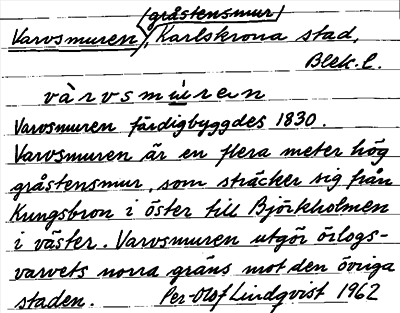 (gråstensmur)
Varvsmuren, Karlskrona stad,
Blek. l.
và r v s m ù r e n
Varvsmuren färdigbyggdes 1830.
Varvsmuren är en flera meter hög
gråstensmur, som sträcker sig från
Kungsbron i öster till Björkholmen
i väster. Varvsmuren utgör örlogs-
varvets norra gräns mot den övriga
staden. Per-Olof Lindqvist 1962